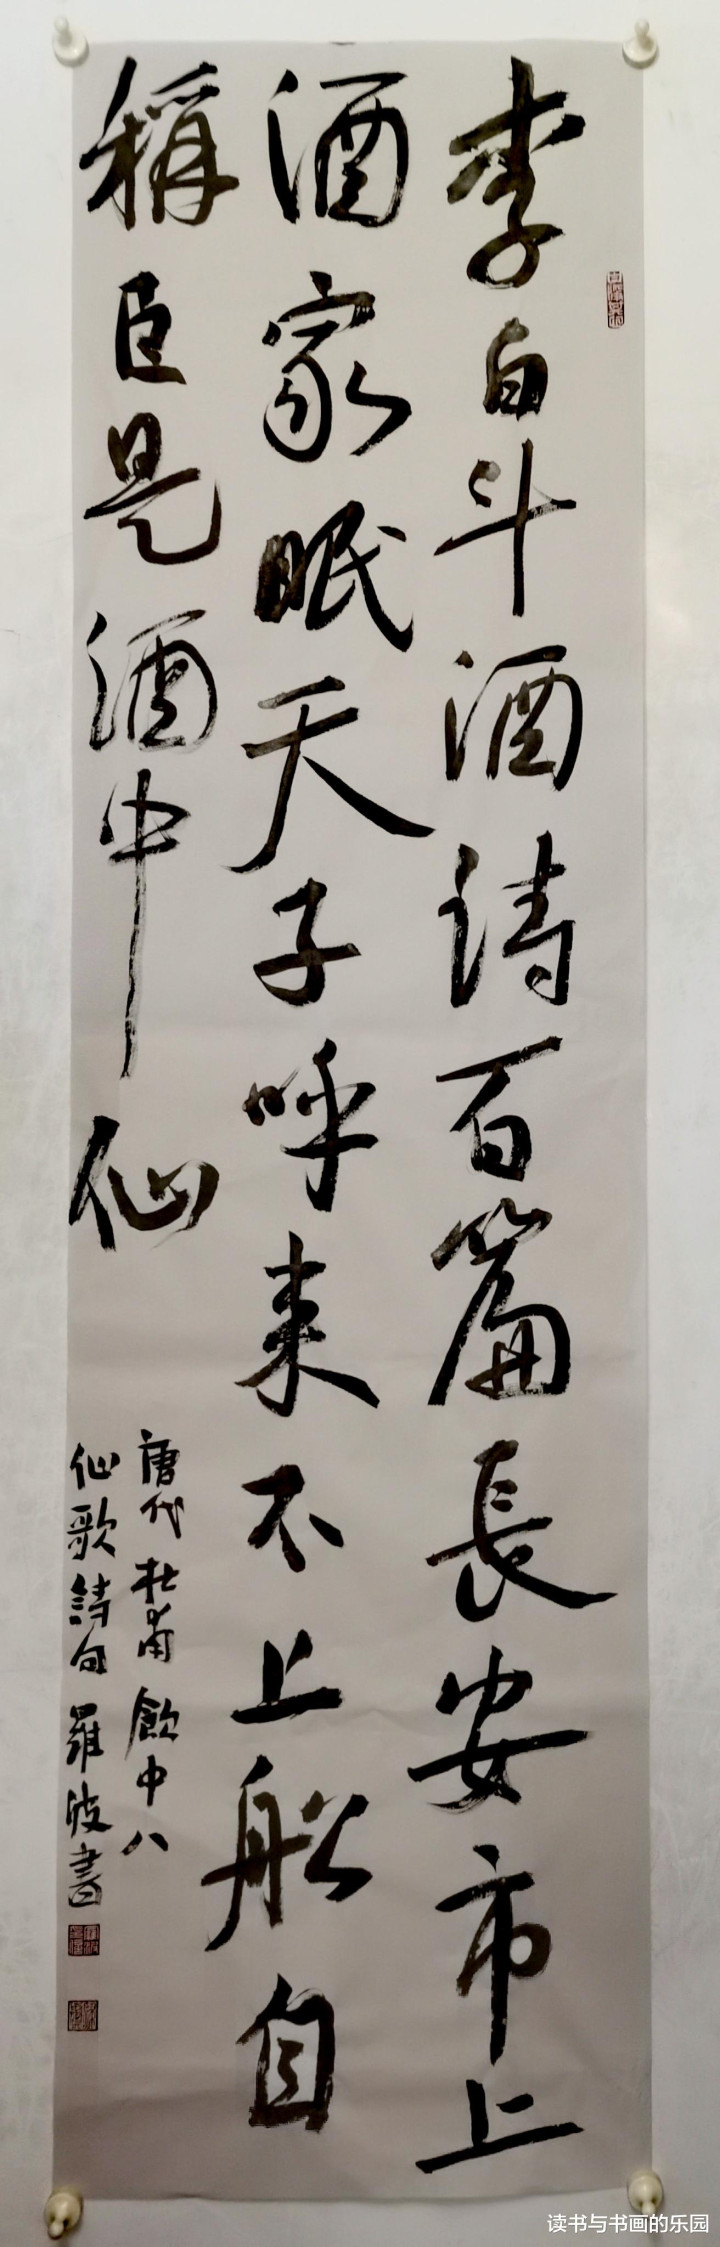 李白斗酒詩百篇長安市上
酒家眠天子呼来不上船自
稱臣是酒中仙
唐代杜甫飲中八
仙歌詩句羅波書
读书与书画的乐园